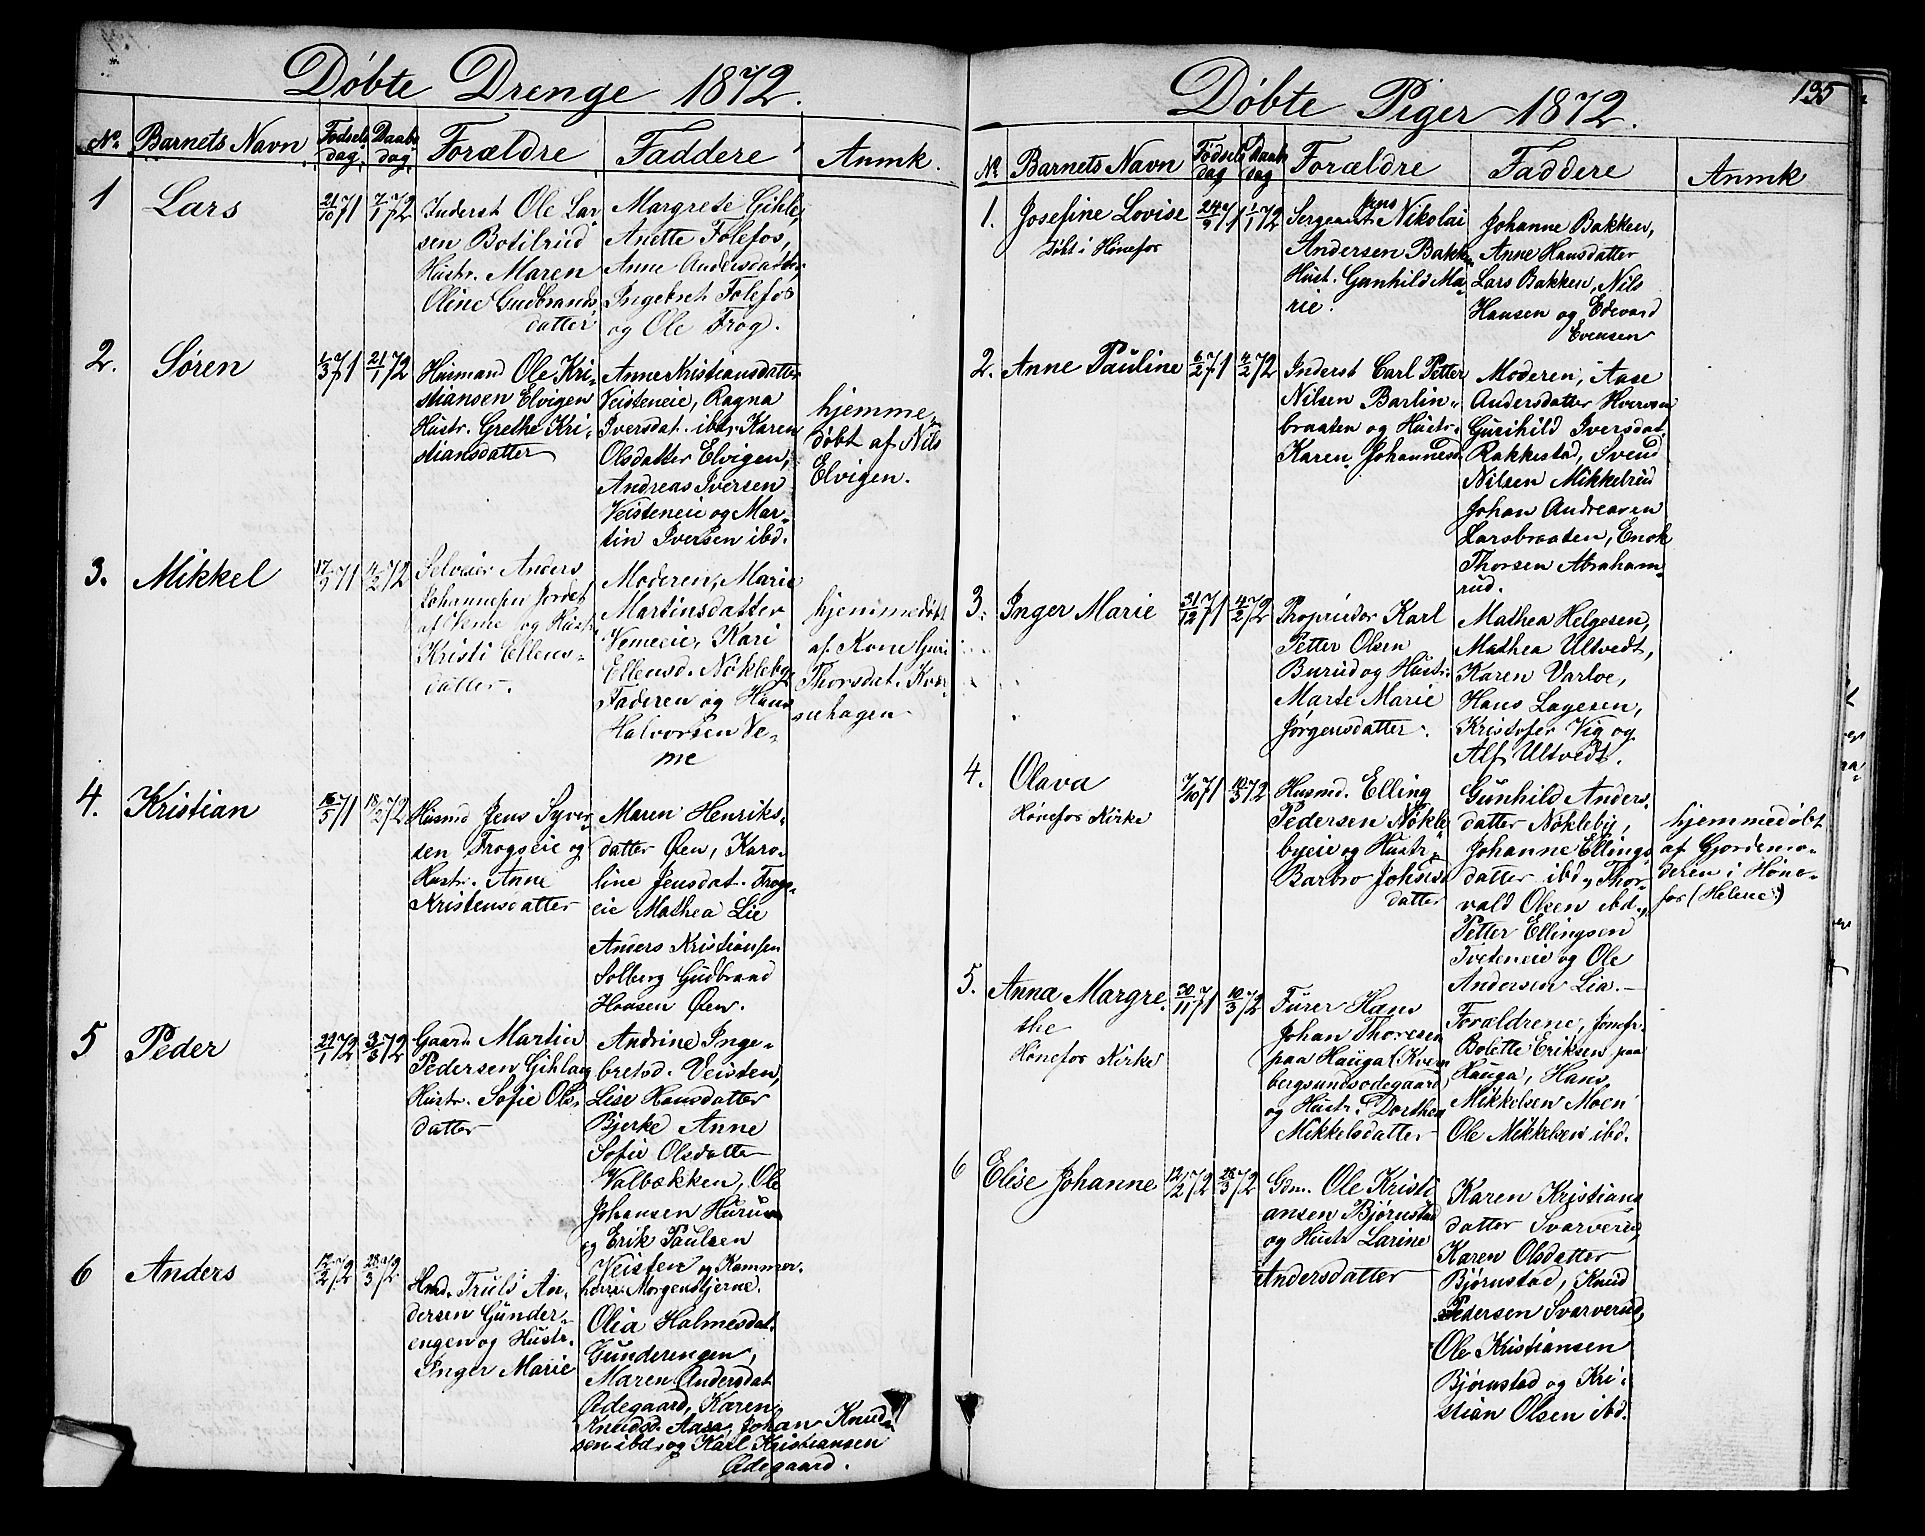 Döbte Drenge 1872.
No. Barnets Navn Födsels dag. Daabs dag. Forældre Faddere Anmk.
1 Lars 21/10 71 7/1 72
Inderst Ole Lar
sen Botilrud
Hustr. Maren
Oline Gudbrands
datter
Margrete Gihle,
Anette Folefos,
Anne Andersdatter
Ingebret Folefos
og Ole Frog.
2. Søren 1/3 71 21/1 72
Husmand Ole Kri-
stiansen Elvigen
Hustr. Grethe Kri-
stiansdatter
Anne Kristiansdatter
Veisteneie, Ragna
Iversdat. ibd, Karen
Olsdatter Elvigen,
Andreas Iversen
Veisteneie og Mar-
tin Iversen ibd.
hjemme
döbt af Nils
Elvigen.
3. Mikkel 17/5 71 4/2 72
Selveier Anders
Johannesen Jordet
af Veme og Hustr.
Kristi Ellens-
datter.
Moderen, Marie
Martinsdatter
Vemeeie, Kari
Ellensd. Nökleby,
Faderen og Hans
Halvorsen Ve-
me
hjemmedöbt
af Kone Guri
Thorsdat.
sehagen
4. Kristian 16/5 71 18/2 72
Husmd Jens Syver
sen Frogseie og
Hustr. Anne
Kristensdatter
Maren Henriks-
datter Øen, Karo-
line Jensdat. Frogs-
eie Mathea Lie
Anders Kristiansen
Solberg Gudbrand
Hansen Øen.
5 Peder 22/1 72 3/3 72
Gaard. Martin
Pedersen Gihle og
Hustr. Sofie Ols-
datter
Andrine Inge-
bretsd. Veisten,
Lise Hansdatter
Bjerke Anne
Sofie Olsdatter
Valbækken, Ole
Johansen Hurum
og Erik Paulsen
Veisten og Kammer-
herre Morgenstjerne.
6 Anders 12/2 72 28/3 72
Hmd. Truls An-
dersen Gunder-
engen og Hustr.
Inger Marie
Olia Holmesdat.
Gunderengen,
Maren Andersdat
Ødegaard, Karen
Knudsd. Aasa, Johan Knud-
sen ibd. og Karl Kristiansen
Ødegaard.
Döbte Piger 1872.
195
No Barnets Navn Födsels dag Daabs dag Forældre Faddere Anmk
1. Josefine Lovise 24/9 71 1/1 72
Döbt i Hönefos
Sergeant Jens Nikolai
Andersen Bakken
Hust. Gunhild Ma-
rie.
Johanne Bakken,
Anne Hansdatter
Lars Bakken, Nils
Hansen og Edevard
Evensen
2. Anne Pauline 6/2 71 4/2 72
Inderst Carl Petter
Nilsen Barlin-
braaten og Hustr.
Karen Johannesd.
Moderen, Aase
Andersdatter Hverven
Gurihild Iversdat.
Rakkestad, Svend
Nilsen Mikkelrud
Johan Andreasen
Larsbraaten, Enok
Thorsen Abraham-
rud.
3. Inger Marie 31/12 71 4/2 72
Proprietær Karl
Petter Olsen
Burud og Hustr.
Marte Marie
Jörgensdatter.
Mathea Helgesen,
Mathea Ultvedt,
Karen Varloe,
Hans Lagesen,
Kristofer Vig og
Alf Ultvedt.
4. Olava 7/10 71 10/3 72
Hönefos Kirke
Husmd. Elling
Pedersen Nökle
byeie og Hustr.
Barbro Johns
datter
Gunhild Anders-
datter Nökleby,
Johanne Ellings
datter ibd., Thor-
vald Olsen ibd.,
Petter Ellingsen
Tveteneie og Ole
Andersen Lia.
hjemmedöbt
af Gjordemo-
deren i Höne-
fos (Helene)
5. Anna Margre- 30/11 71 10/3 72
the
Hönefos Kirke
Furer Hans
Johan Thoresen
paa Hauga (Kvern
bergsundsödegaard)
og Hustr. Dorthea
Mikkelsdatter
Forældrene, Jomfr.
Bolette Eriksen paa
Hauga, Hans
Mikkelsen Moen
Ole Mikkelsen ibd.
6 Elise Johanne 12/2 72 28/3 72
Gdm. Ole Kristi
ansen Björnstad
og Hustr Larine
Andersdatter
Karen Kristians
datter Svarverud,
Karen Olsdatter
Björnstad, Knud
Pedersen Svarverud,
Ole Kristiansen
Björnstad og Kri-
stian Olsen ibd.